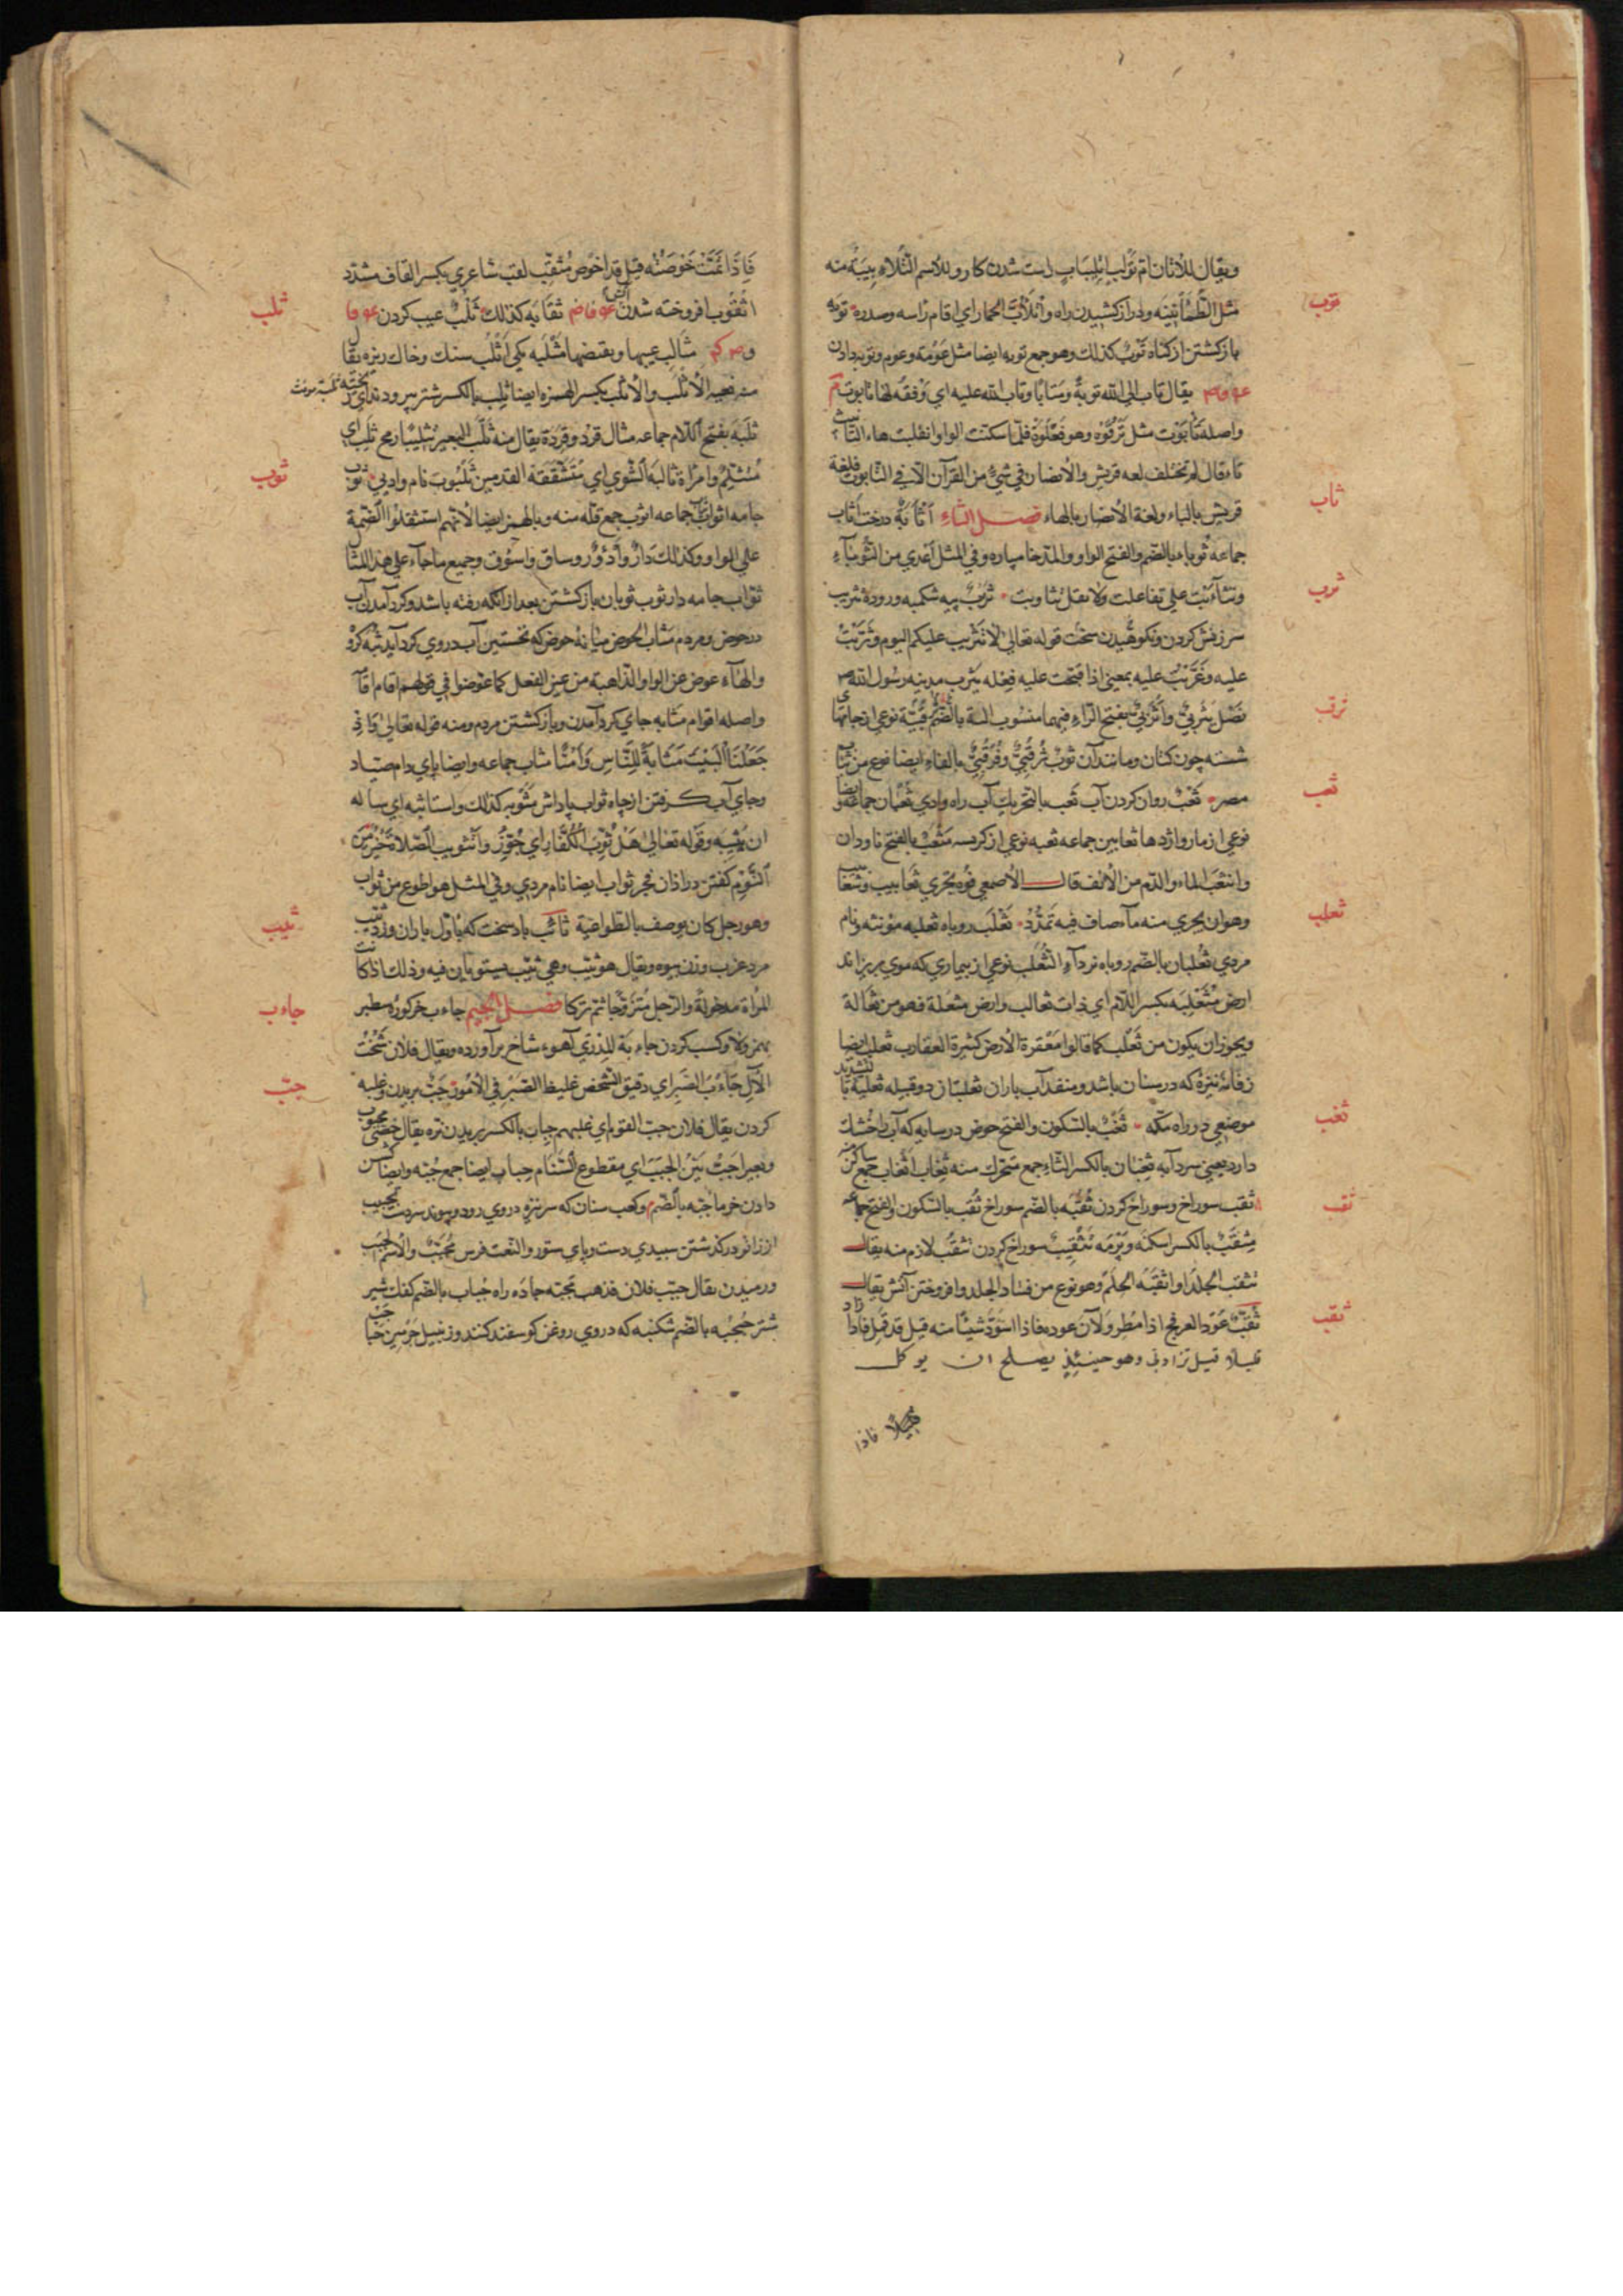 ويقال للأتان ام تولب اتلئباب راست شدن كار والاسم التلأبيبة منه
توب
مثل الطمأنينه ودراز كشيدن راه واتلأبّ الحمار اي اقام راسه وصدره توبه
بازكشتن از كناه توب كذلك وهو جمع توبه ايضا مثل عومة وعوم وتوبه دادن
يقال تاب الي الله توبةً ومتابًا وتاب الله عليه اي وفقه لها تابوت
واصله تابوت مثل ترقوة وهو فعلوة فلما سكنت الواو انقلبت هاء التانيث
تاء قال لم تختلف لغه قريش والأنصار في شيءٍ من القرآن الا في التابوت فلغة
ثاب
قريش بالتاء ولغة الأنصار بالهاء فصل الثاء أثأبة درخت اثاب
جماعه ثوباء بالضم والفتح الواو والمد خامياره وفي المثل أعدي من الثوباء
ثرب
وتثاءبت علي تفاعلت ولا تقل تثاوبت ثرب پيه شكمبه وروده تثريب
سرزنش كردن ونكوهيدن سخت قوله تعالي لا تثريب عليكم اليوم وثربت
عليه وعربت عليه بمعني اذا قبحت عليه فعله يثرب مدينه رسول الله
ثرقب
نصل يثربي واثربي بفتح الراء فيهما منسوب اليه بالضم ثرقبيّة نوعي از جامهاي
شسته چون كتان ومانند آن ثوب ثرقبي وفرقبي بالفاء ايضا نوع من ثياب
ثعب
مصر ثعب روان كردن آب ثعب بالتحريك آب راه وادي ثعبان جماعه وايضا
نوعي از مار واژدها ثعابين جماعه ثعبه نوعي از كربسه مثعب بالفتح ناودان
وانثعب الماء والدم من الأنف قال الأصمعي فوه يجري ثعابيب وثعابيب
ثعلب
وهو ان يجري منه ماء صاف فيه تمدد ثعلب روباه ثعلبه مؤنثه ونام
مردي ثعلبان بالضم روباه نر داء الثعلب نوعي از بيماري كه موي بريزاند
ارض مثعلبه بكسر اللام اي ذات ثعالب وارض مثعلة فهو من ثعالة
ويجوز ان يكون من ثعلب كما قالوا معقرة الأرض كثيرة العقارب ثعلب ايضا
زفانه نيزه كه در سنان باشد ومنفذ آب باران ثعلبتان دو قبيله ثعلبية بالتشديد
ثغب
موضعي در راه مكه ثغب بالسكون والفتح حوض در سايه كه آب را خشك
دارد يعني سردابه ثغبان بالكسر الثاء جمع متحرك منه ثغاب اثغاب جمع ساكن
ثقب
ثقب سوراخ وسوراخ كردن ثقبه بالضم سوراخ ثقب بالسكون والفتح جماعه
مثقب بالكسر اسكنه وبرمه تثقيب سوراخ كردن تثقب لازم منه يقال
تثقب الجلد اذا ثقبه الحلم وهو نوع من فساد الجلد وافروختن آتش يقال
ثقب
ثقب عود العرفج اذا مطر ولان عوده فاذا اسود شيئا منه قيل قد قمل فاذا زاد
قليلا قيل قد ادبى وهو حينئذٍ يصلح ان يوكل
فاذا
فاذا تمت خوصته قيل قد اخوص مثقب لقب شاعري بكسر القاف مشدد
ثلب
اثقوب افروخته شدن آتش ثقابه كذلك ثلب عيب كردن
مثالب عيبها وبعضها مثلبه يكي اثلب سنك وخاك ريزه يقال
منه بفيه الأثلب والأثلب بكسر الهمزه ايضا ثلب بالكسر شتر پير ودندان ريخته ثلبة مونث
ثلبه بفتح اللام جماعه مثال قرد وقردة يقال منه ثلب البعير تثليبا رمح ثلب اي
ثوب
متثلم وامرأة ثالبة الشوي اي متشققة القدمين ثلبوت نام وادي ثوب
جامه اثواب ثياب جماعه اثوب جمع قله منه وبالهمز ايضا لانهم استثقلوا الضمة
علي الواو وكذلك دار وادؤر وساق واسؤق وجميع ما جاء علي هذا المثال
ثواب جامه دار ثوب ثوبان بازكشتن بعد از آنكه رفته باشد وكرد آمدن آب
در حوض ومردم مثاب الحوض ميانه حوض كه نخستين آب دروي كرد آيد ثبه كرو
والهاء عوض عن الواو الذاهبة من عين الفعل كما عوضوا في قولهم اقام اقامة
واصله اقوام مثابه جاي كرد آمدن وبازكشتن مردم ومنه قوله تعالي واذ
جعلنا البيت مثابة للناس وامنا مثاب جماعه وايضا پاي دام صياد
وجاي آب كرفتن از چاه ثواب پاداش مثوبه كذلك واستثابه اي ساله
ان يثيبه وقوله تعالي هل ثوب الكفار اي جوزي وتثويب الصلاة خير من
النوم كفتن در اذان فجر ثواب ايضا نام مردي وفي المثل هو اطوع من ثواب
ثيب
وهو رجل كان يوصف بالطواعية ثائب باد سخت كه باول باران وزد ثيب
مرد عزب وزن بيوه ويقال هو ثيب وهي ثيب يستويان فيه وذلك اذا كانت
جاءب
المرأة مدخولة والرجل متزوجا ثم تركا فصل الجيم جاءب خر كوره سطبر
بهمز ولا وكسب كردن جاءبة المدري آهوء شاخ برآورده ويقال فلان شخت
جبّ
الآل جاءب الصبر اي دقيق الشخص غليظ الصبر في الأمور جبّ بريدن وغلبه
كردن يقال فلان جب القوم اي غلبهم جباب بالكسر بريدن نره يقال خصي مجبوب
وبعير اجب بين الجبب اي مقطوع السنام جباب ايضا جمع جبه وايضا
دادن خرما جبه بالضم وكعب سنان كه سر نيزه دروي رود وپيوند سر دست تجبيب
از زانو در كذشتن سپيدي دست وپاي ستور والنعت فرس مجبب والاسم الجبب
ورميدن يقال جبب فلان فذهب جبة جاده راه جباب بالضم كفك شير
شتر جبجبه بالضم شكنبه كه دروي روغن كوسفند كنند وزنبيل چرمين جباجب